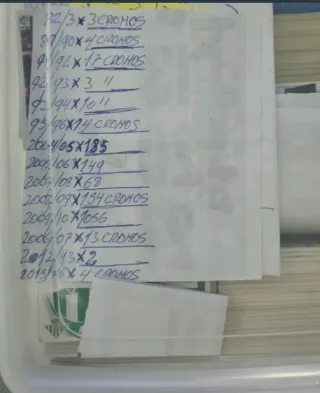 82/3 x 3 CROMOS
89/90 x 4 CROMOS
91/92 x 17 CROMOS
92/93 x 3 "
93/94 x 10 "
95/96 x 14 CROMOS
2004/05 x 185
2005/06 x 149
2007/08 x 68
2008/09 x 154 CROMOS
2009/10 x 1056
2006/07 x 13 CROMOS
2012/13 x 2
2015/16 x 4 CROMOS